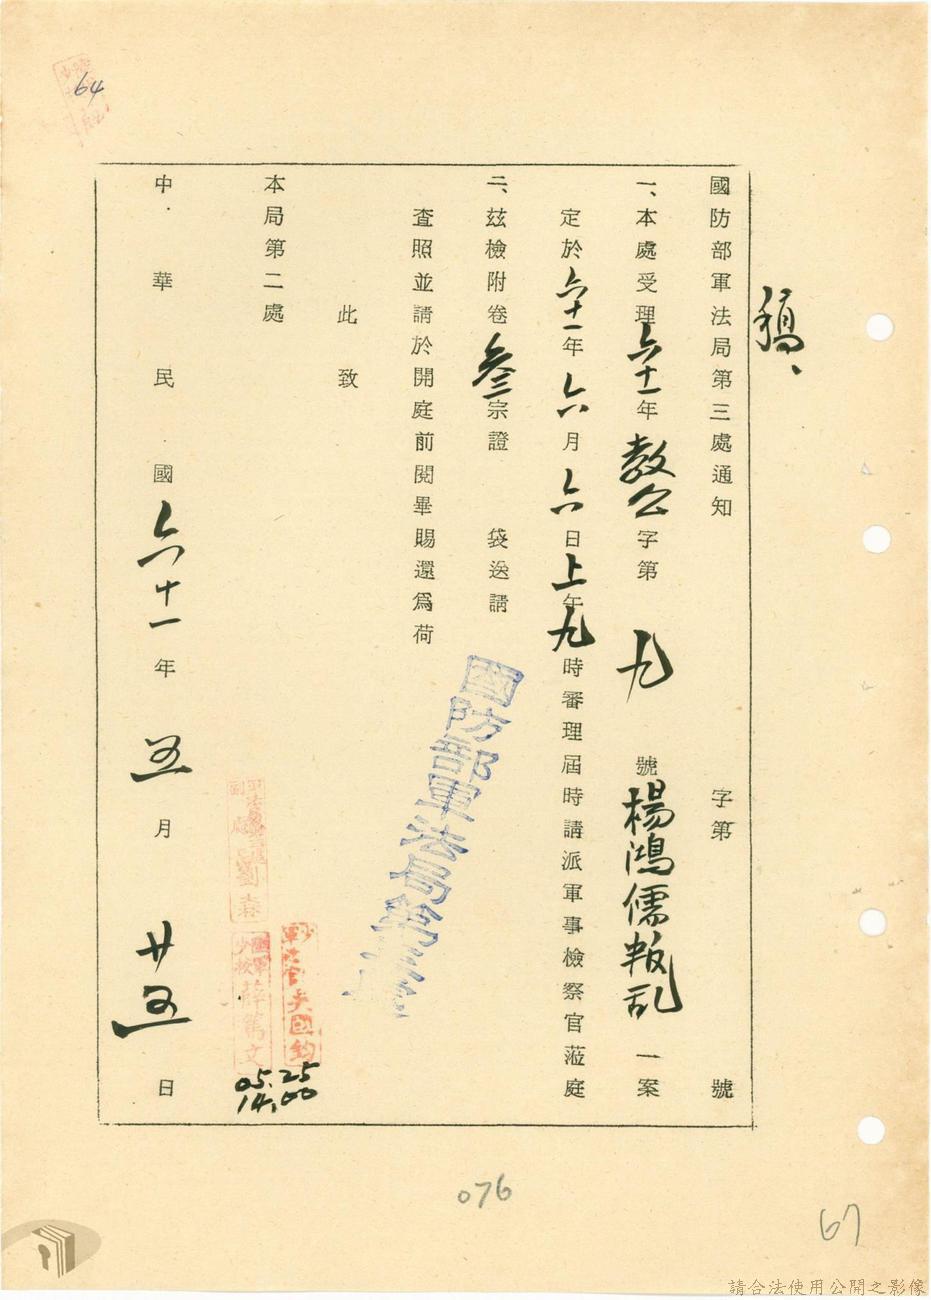 稿、
國防部軍法局第三處通知　字第　號
一、本處受理六十一年教公字第九號楊鴻儒叛乱一案
定於六十一年六月六日上午九時審理屆時請派軍事檢察官蒞庭
二、茲檢附卷叁宗證　袋送請
查照並請於開庭前閱畢賜還為荷
此致
本局第二處
中華民國六十一年五月廿五日
國防部軍法局第三處
軍法官吳國鈞
陸軍少校薛篤文
劉森
05.25
14,00
64
076
67
請合法使用公開之影像